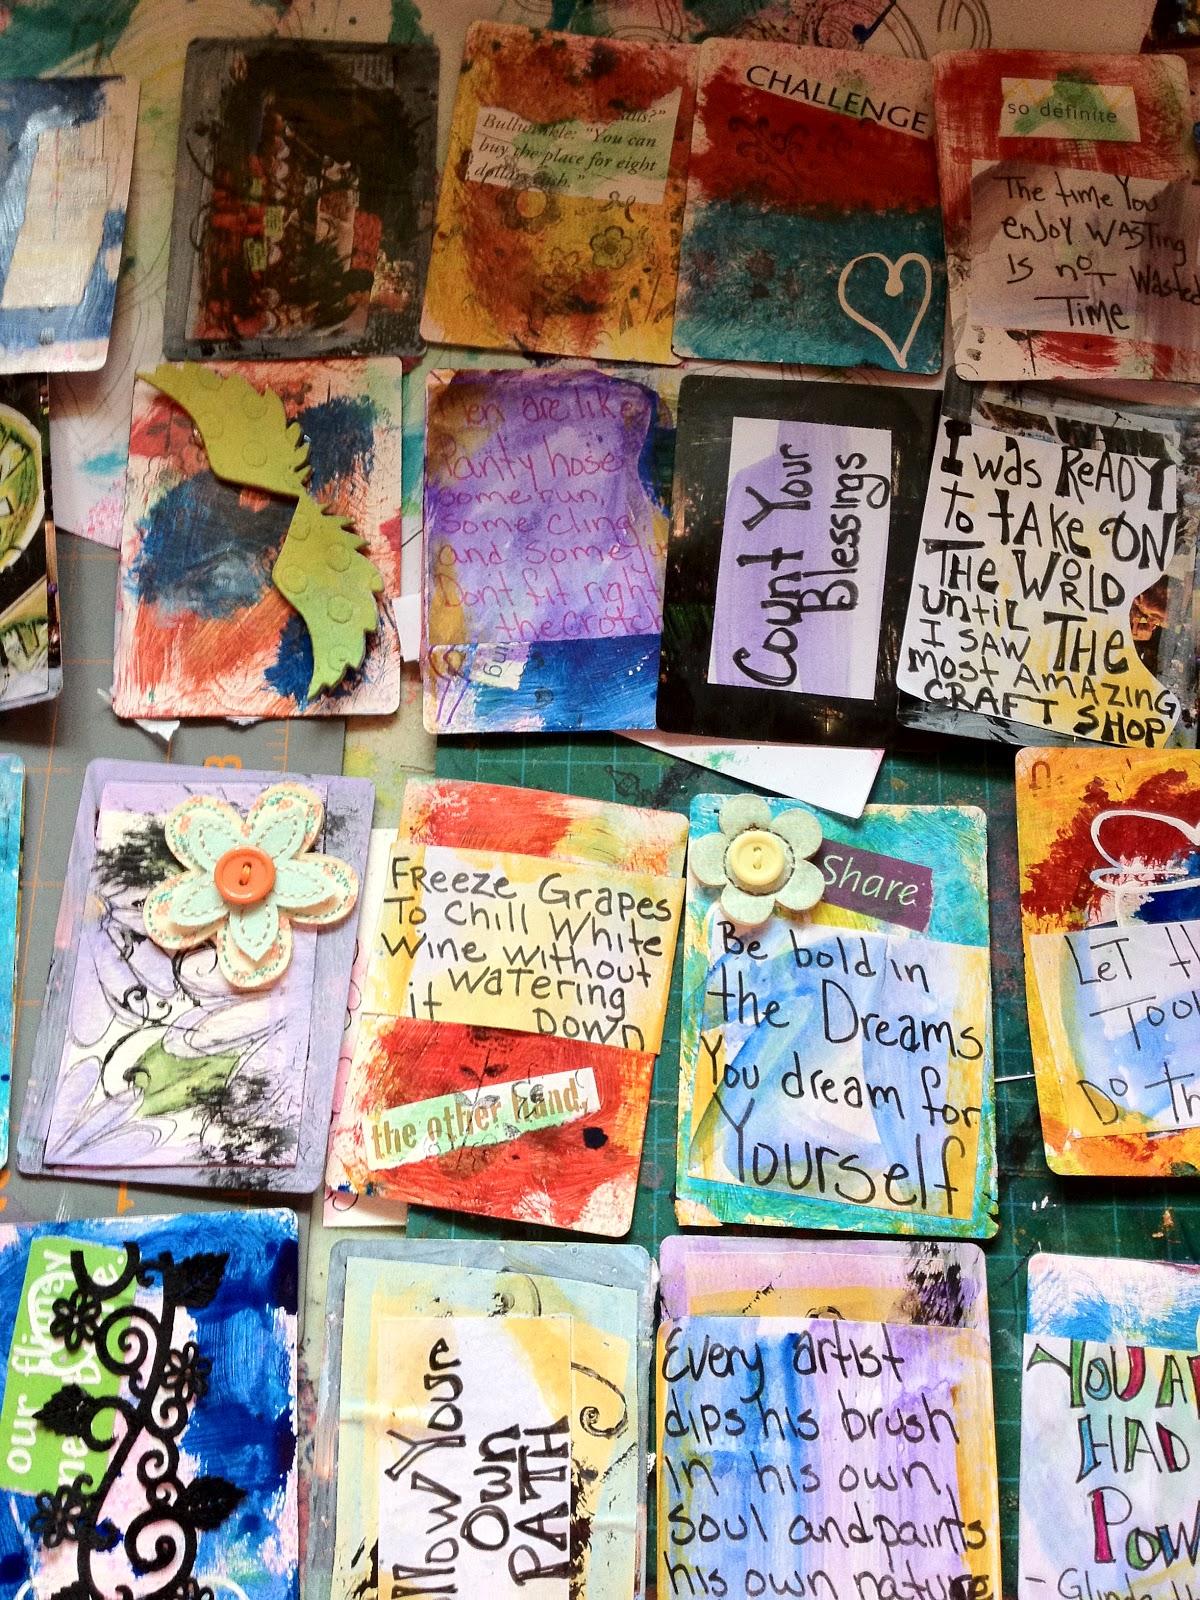 Bullwinkle: "You can
buy the place for eight
dollars each."
CHALLENGE
so definite
The time You
enjoy WASTing
is noT Wasted
Time
Men are like
Panty hose
some run,
some cling
and some
Dont fit right
the crotch
Count Your
Blessings
I was READY
To TAKE ON
THE WORLD
until
I SAW THE
most AMAZING
CRAFT SHOP
FReeze Grapes
To Chill White
Wine without
WATERING
it DOWN
the other hand,
Share
Be bold in
the Dreams
You dream for
Yourself
LeT
Do
our flimsy
Your
Own
PATH
Every artist
dips his brush
in his own,
soul and paints
his own nature
YOU
HAD
- Glinda